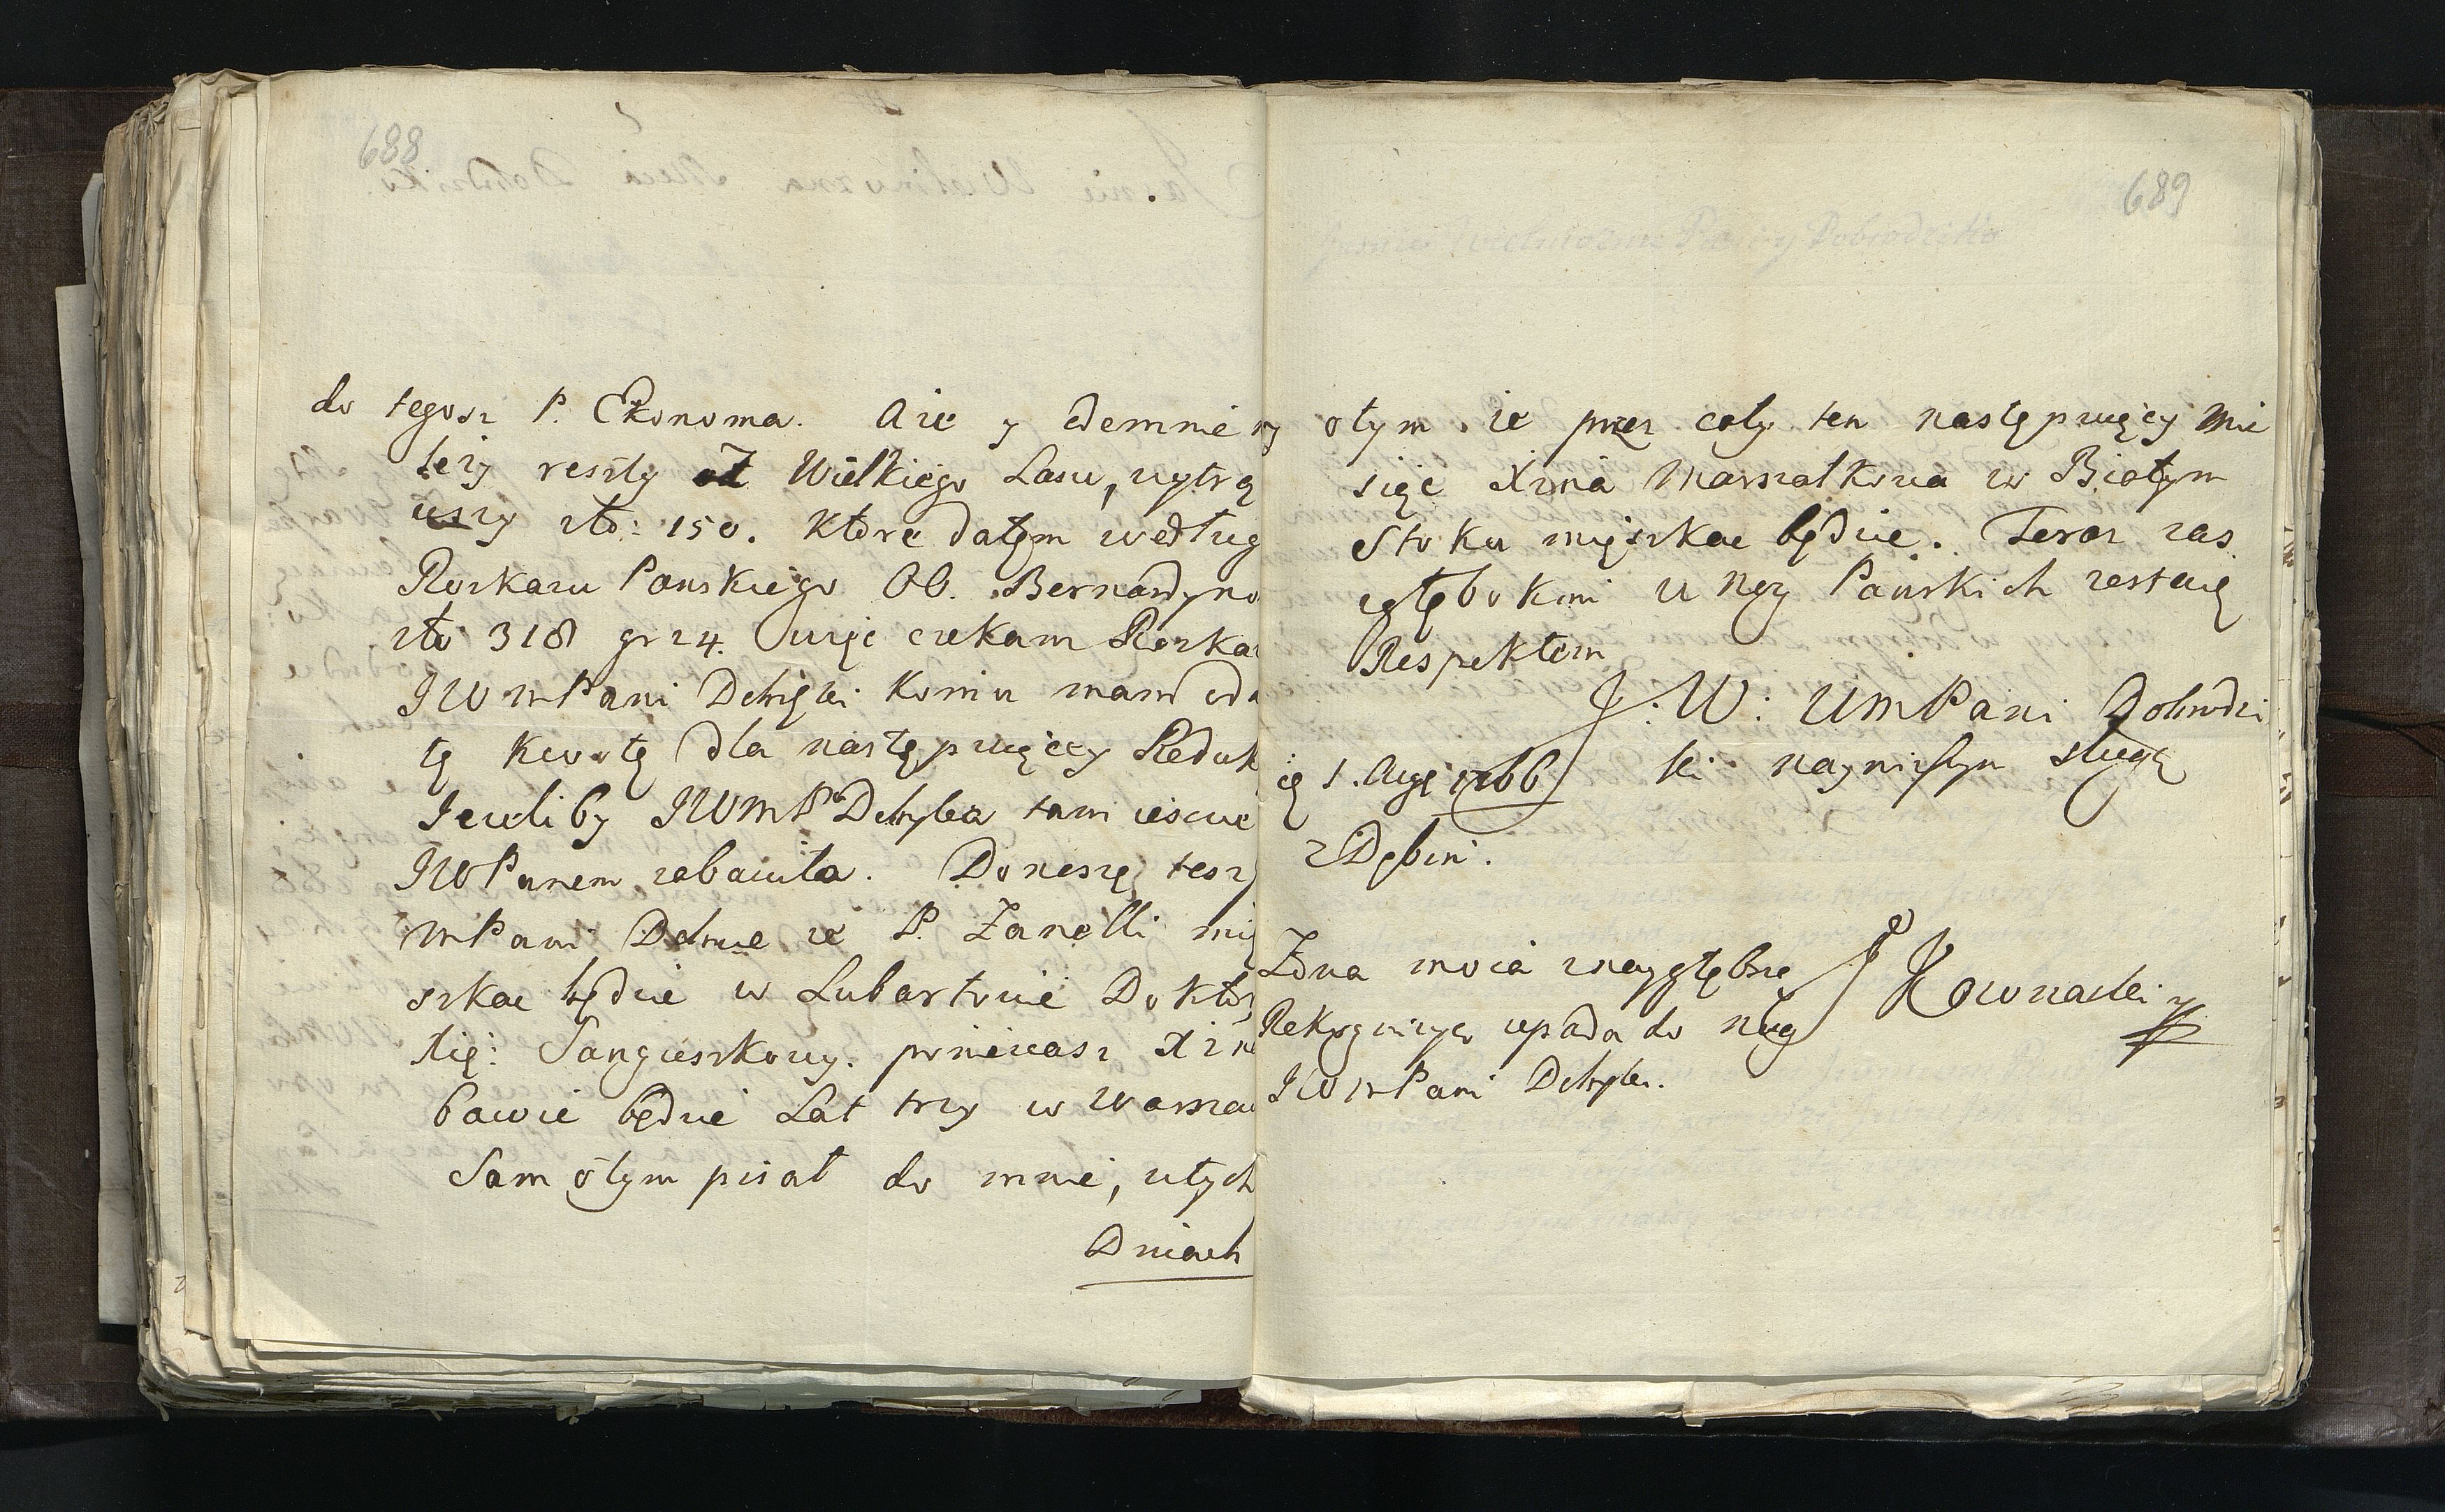 688
do tegosz P. Ekonoma. A że y odemnie
teży reszty od Wielkiego Lasu, wytrą
uszy zło: 150. Ktore dałym według
Rozkazu Panskiego OO. Bernardyno
zło 318 gr 24. Więc czekam Rozka
JWmPani Dobrięki komu mam od
tę Kwotę dla następuięcy Reduk
Jeżeli by JWMP Dobryka tam ieszcze
JWPanem zabawiła. Doneszę tesz
mPani Dobrue że P. Zanelli mię
szkac będzie w Lubartowie Doktor
Xię: Sangieszkowy. poniewasz Xzn
bawic będzie Lat trzy w Warszaw
Sam o tym pisał do mnie, w tych
Dniach
689
o tym. że przez cały ten następuięcy mie
sięc Xzna Marszałkowa w Białym
Stoku mięszkac będzie. Teraz zas
z głębokim u Nog Pańskich zestaię
Respektem
J: W: UmPani Dobrodzi
ki nayniższym sługą
1. Augę 1766
z Dębini.
Żona moia z nayęłębszę
Rekognicyę upada do nug
JWmPani Dobryki.
J Kownacki